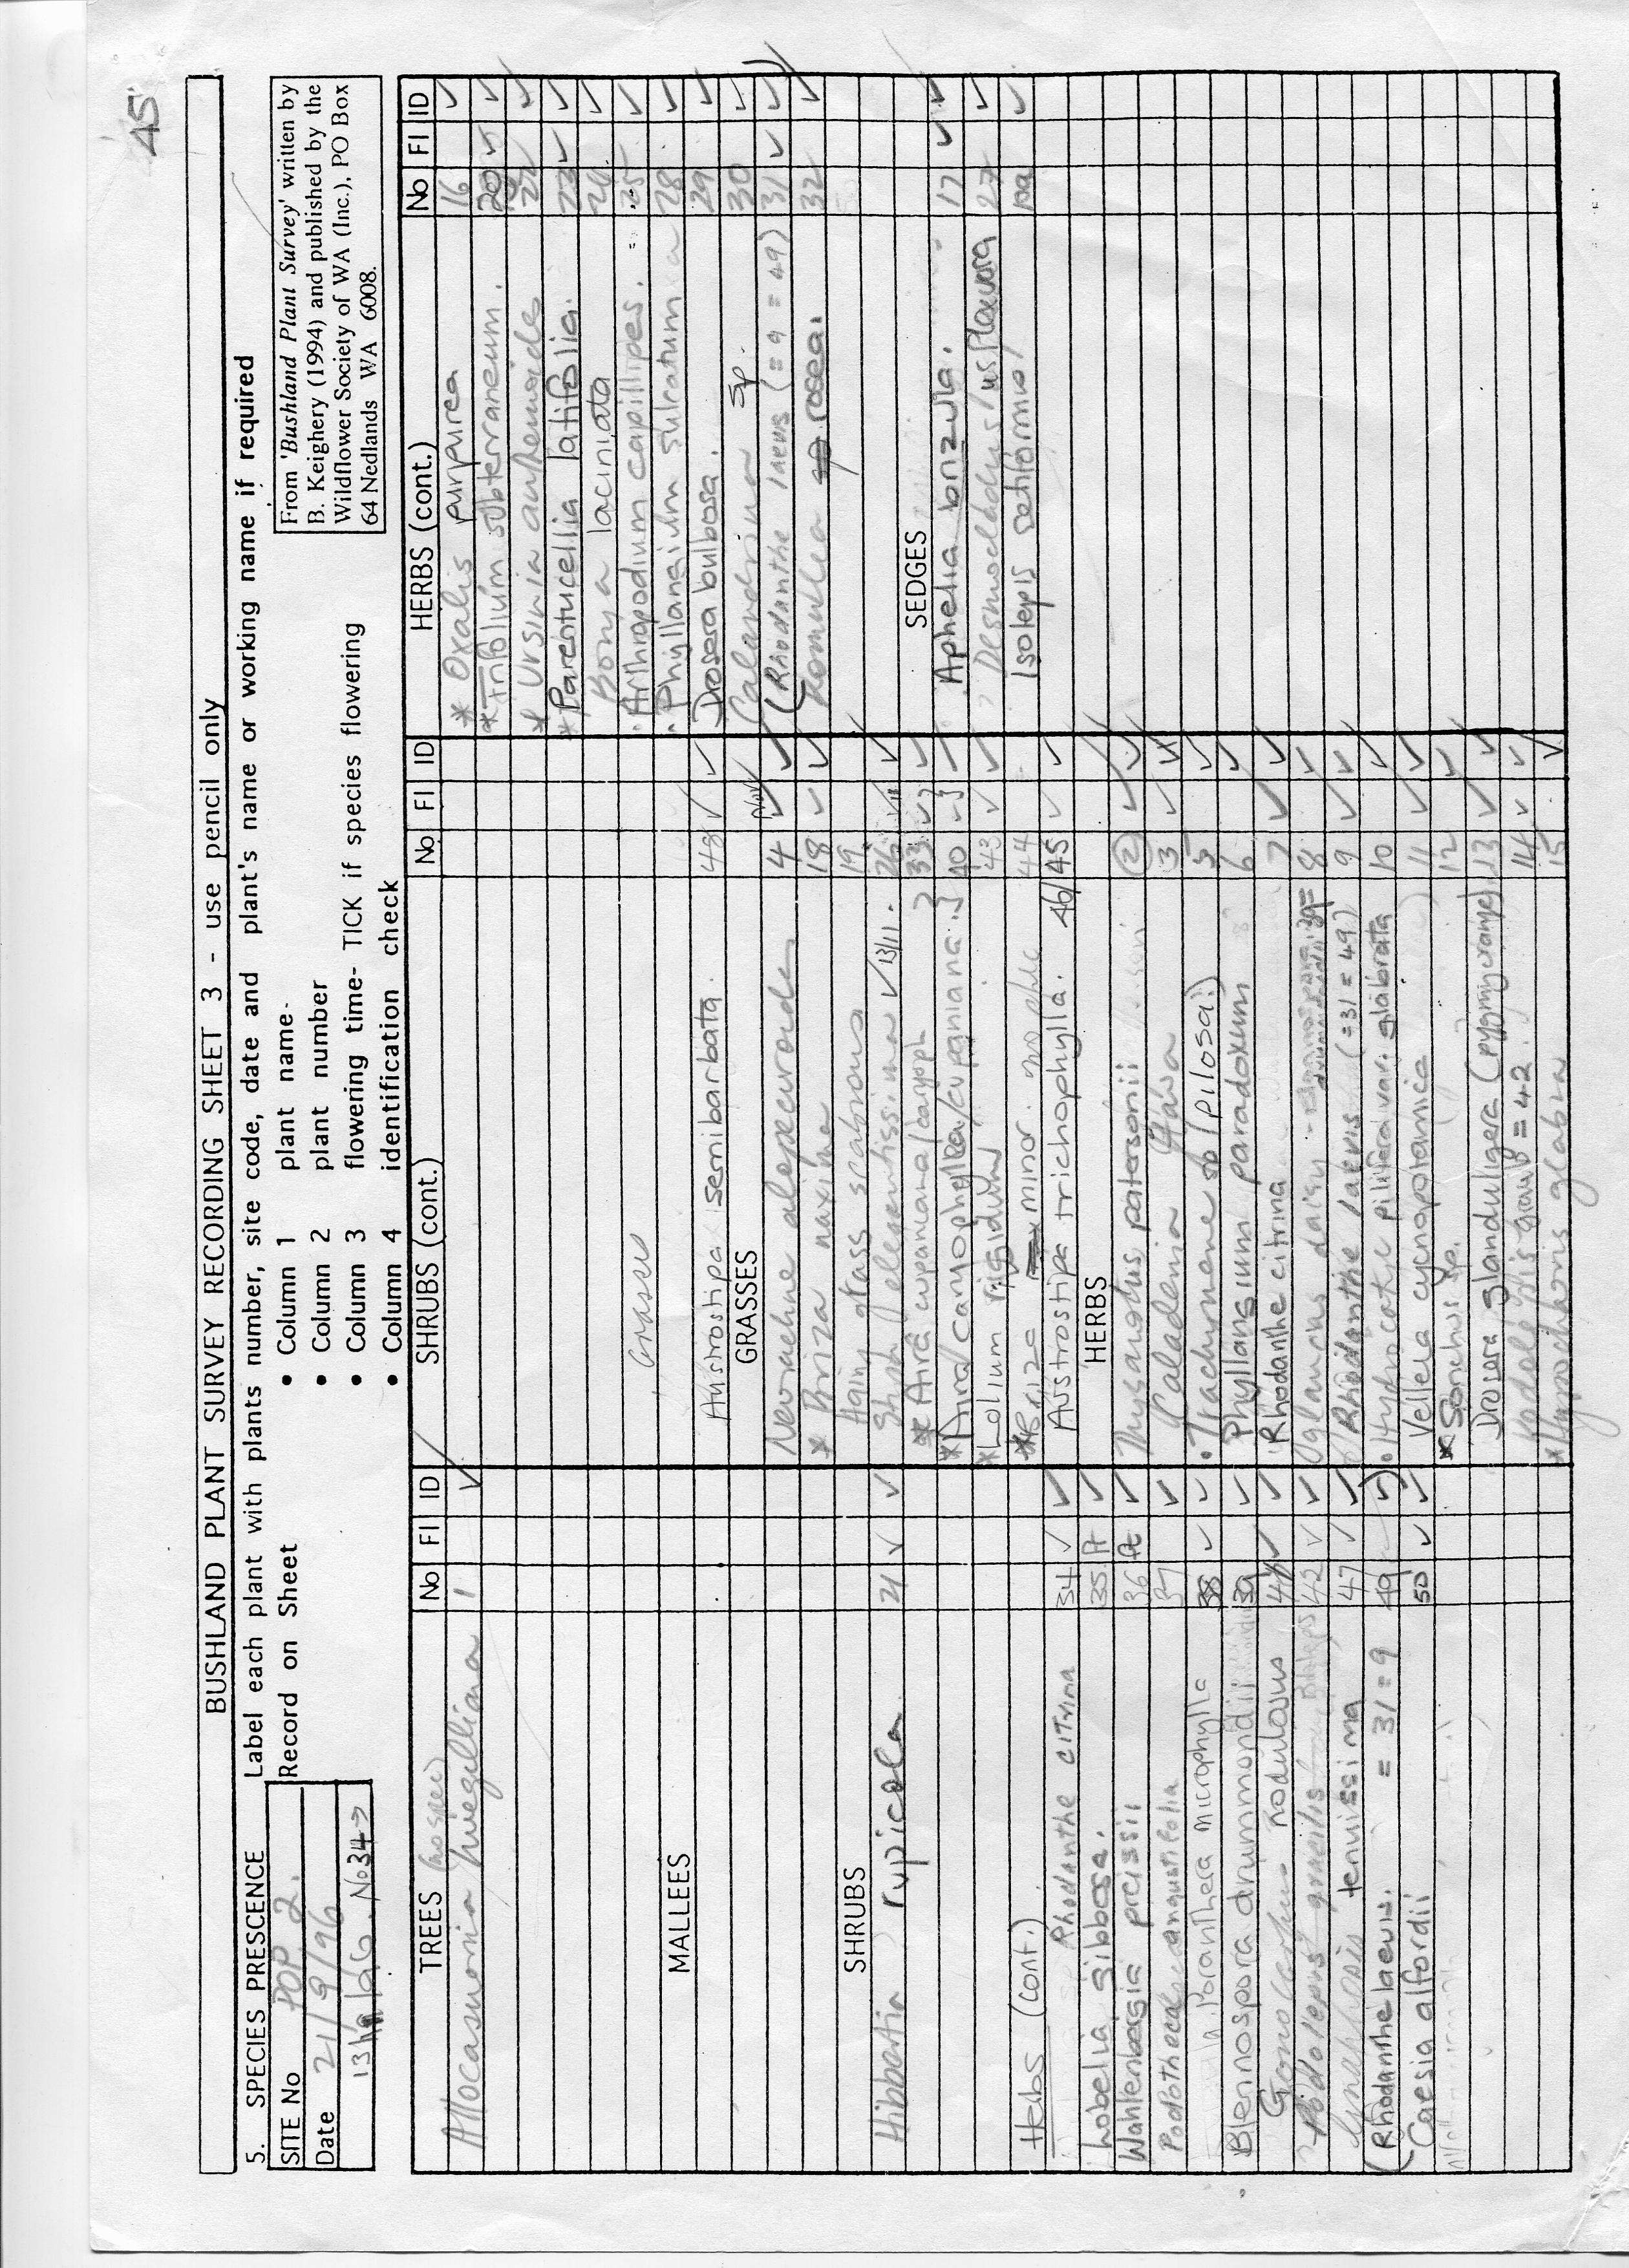 45
BUSHLAND PLANT SURVEY RECORDING SHEET 3 - use pencil only
5. SPECIES PRESENCE
Label each plant with plants number, site code, date and plant's name or working name if required
SITE No POP 2.
Date 21/9/96
No 34 →
Record on Sheet
• Column 1 plant name
• Column 2 plant number
• Column 3 flowering time- TICK if species flowering
• Column 4 identification check
From 'Bushland Plant Survey' written by
B. Keighery (1994) and published by the
Wildflower Society of WA (Inc.), PO Box
64 Nedlands WA 6008.
TREES No FI ID
Allocasuarina huegeliana 1 ✓
MALLEES
SHRUBS
Hibbertia rupicola 21 ✓ ✓
Herbs (cont.)
Rhodanthe citrina 34 ✓ ✓
Lobelia gibbosa. 35 ft ✓
Wahlenbergia preissii 36 ft ✓
Podotheca angustifolia 37 ✓
Poranthera microphylla 38 ✓ ✓
Blennospora drummondii 39 ✓
Gonocarpus nodulosus ✓ ✓
Podolepis gracilis 42 ✓ ✓
tenuissima 47 ✓ ✓
(Rhodanthe laevis. = 31 = 9 49 ✓)
Caesia alfordii 50 ✓ ✓
SHRUBS (cont.) No FI ID
Grasses
Austrostipa semibarbata. 48 ✓ ✓
GRASSES
Neurachne alopecuroidea 4 ✓ ✓
* Briza maxima 18 ✓ ✓
Hairy grass 19
Stipa elegantissima ✓ 13/11. 26 ✓
* Aira cupaniana/caryoph 33 ✓
* Aira caryophyllea/cupaniana 40
* Lolium rigidum 43 ✓ ✓
* Briza minor. 44
Austrostipa trichophylla. 46/45 ✓ ✓
HERBS
Thysanotus patersonii 2 ✓ ✓
Caladenia flava 3 ✓
• Trachymene sp (pilosa) 5 ✓
Phyllangium paradoxum 6 ✓
Rhodanthe citrina 7 ✓ ✓
8 ✓
Rhodanthe laevis (= 31 = 49) 9 ✓ ✓
• Hydrocotyle pilifera var. glabrata 10 ✓
Velleia cycnopotamica 11 ✓ ✓
* Sonchus sp. 12
Drosera glanduligera 13 ✓ ✓
= 42 14 ✓ ✓
* Hypochaeris glabra 15 ✓
HERBS (cont.) No FI ID
* Oxalis purpurea 16 ✓
* Trifolium subterraneum. 20 ✓ ✓
* Ursinia anthemoides 22 ✓
* Parentucellia latifolia. 23 ✓ ✓
Borya laciniata 24 ✓
Arthropodium capillipes. 25 ✓
• Phyllangium sulcatum 28 ✓
Drosera bulbosa. 29 ✓
Calandrinia sp. 30 ✓
(Rhodanthe laevis (= 9 = 49) 31 ✓ ✓)
Romulea rosea. 32 ✓
SEDGES
Aphelia brizula. 17 ✓ ✓
Desmocladus flexuosa 27 ✓
Isolepis cetiformis ✓